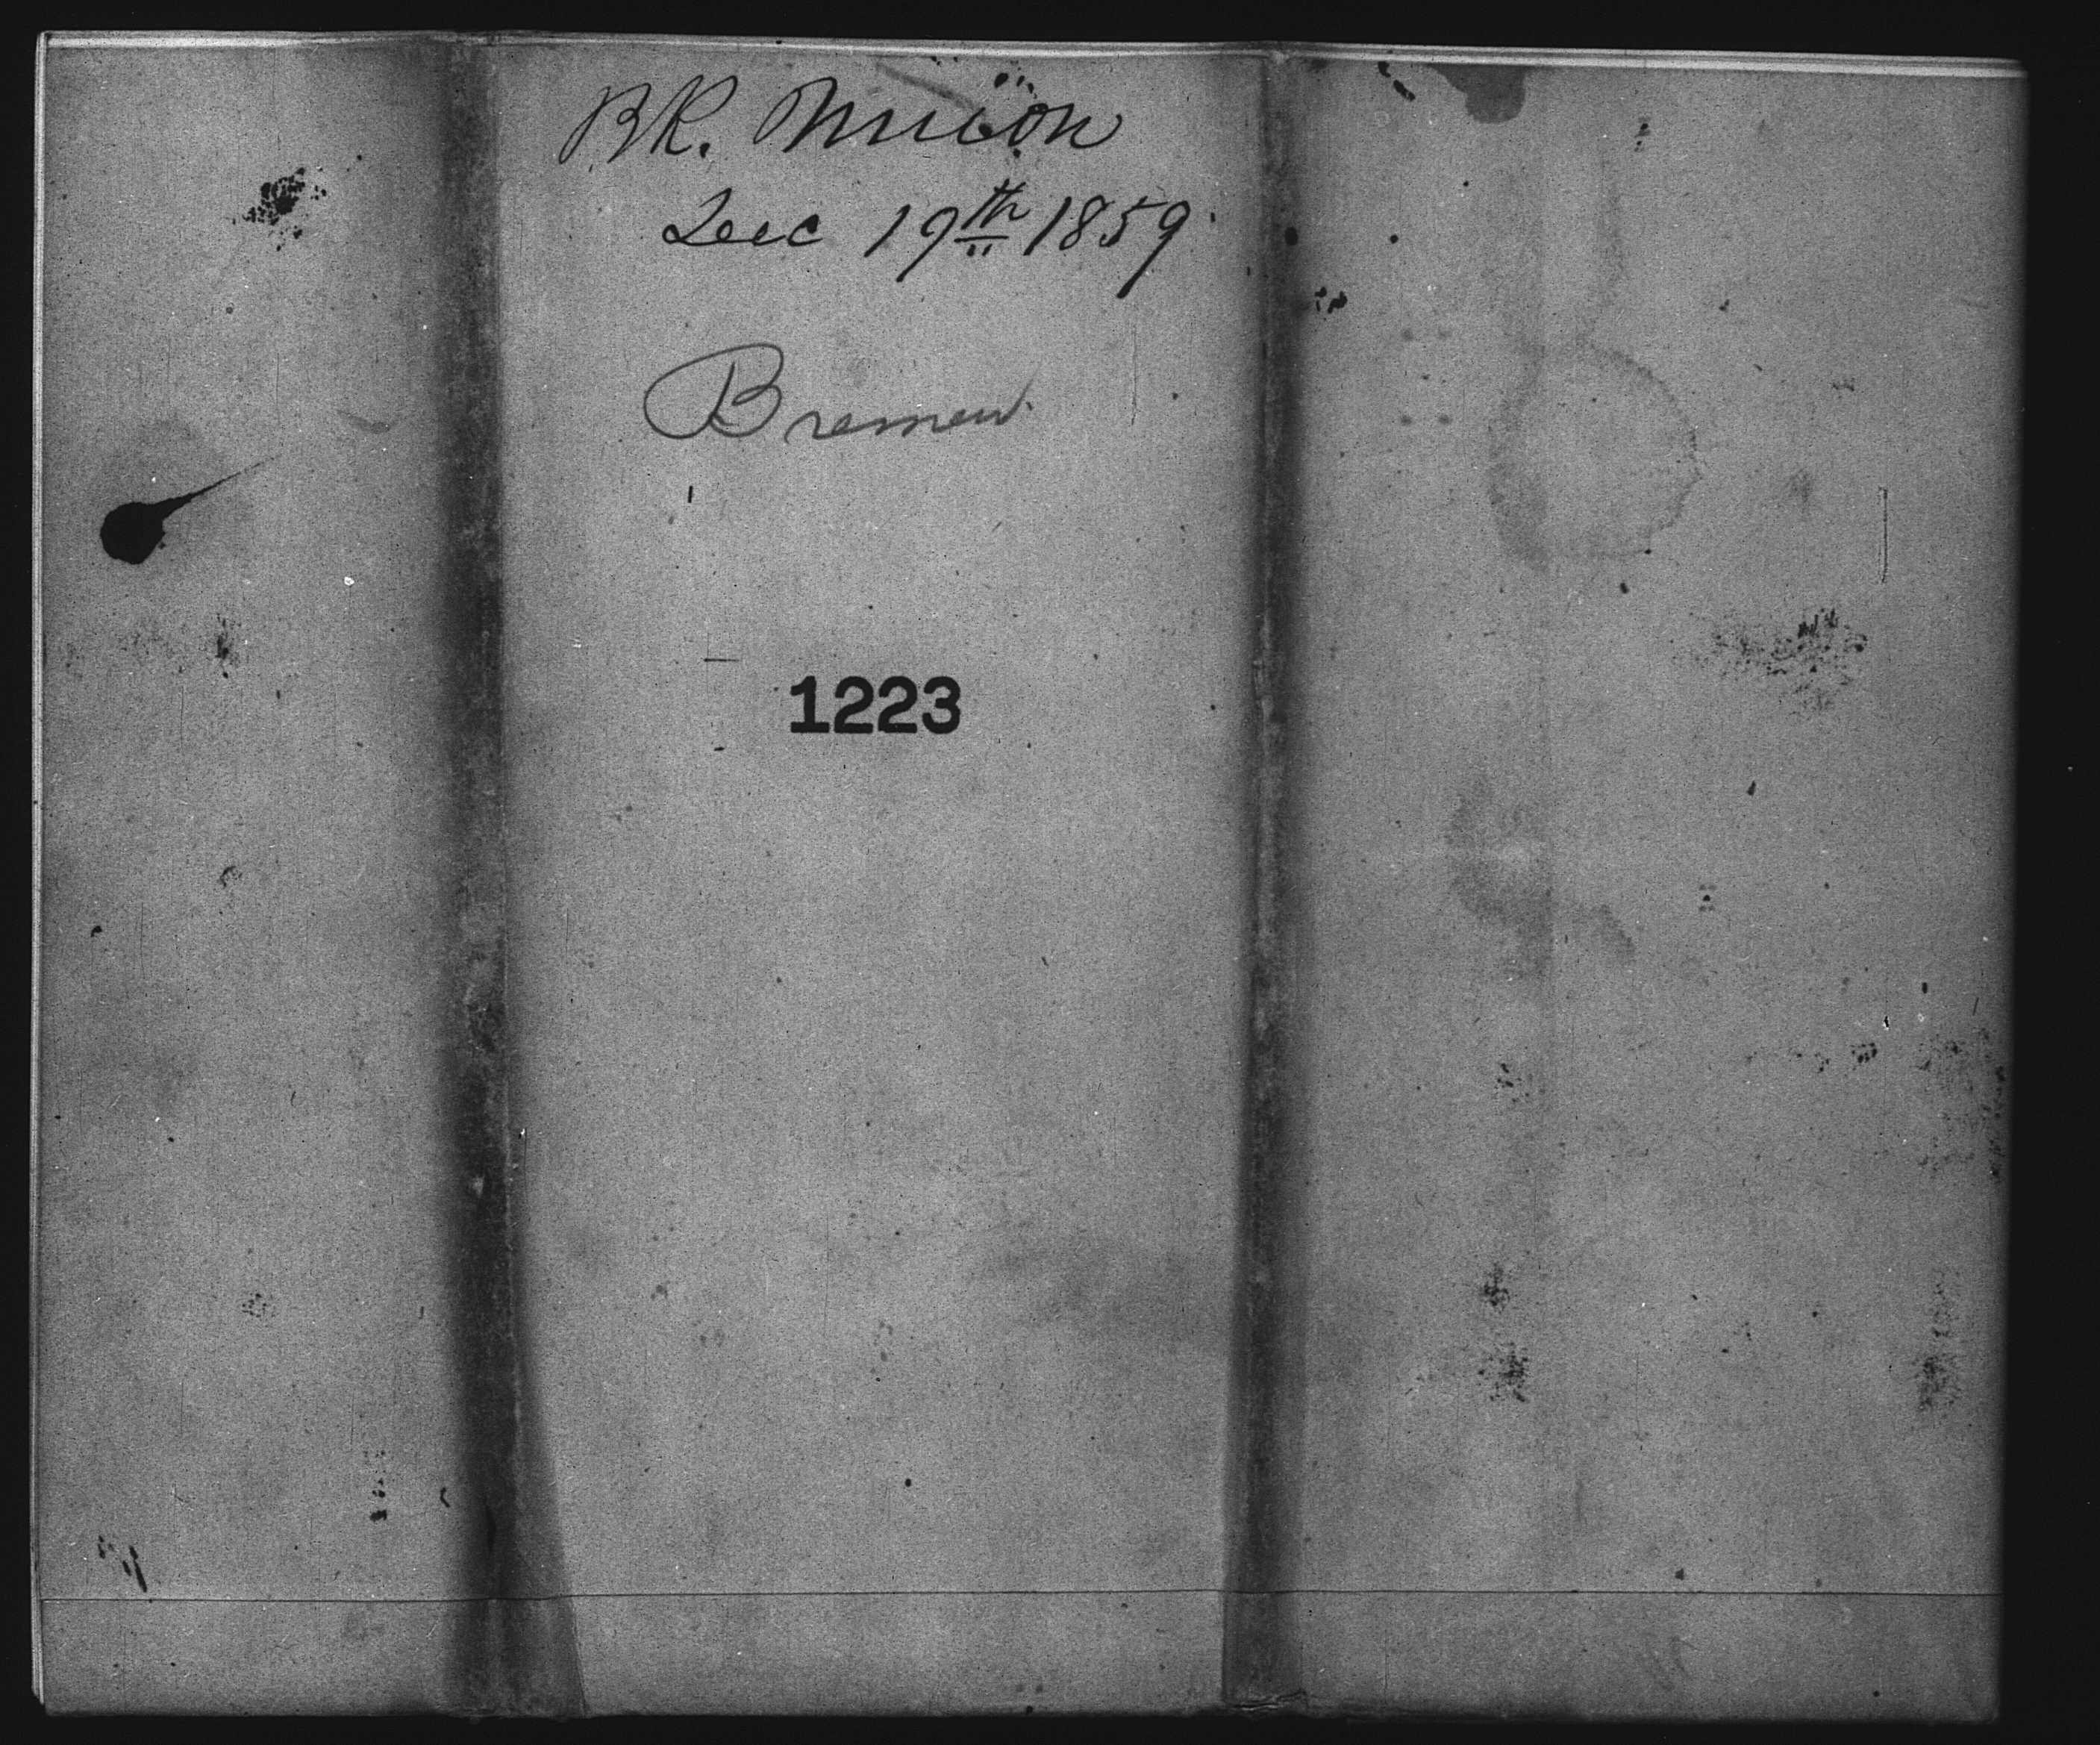 BK.
Dec 19th 1859
Bremen
1223